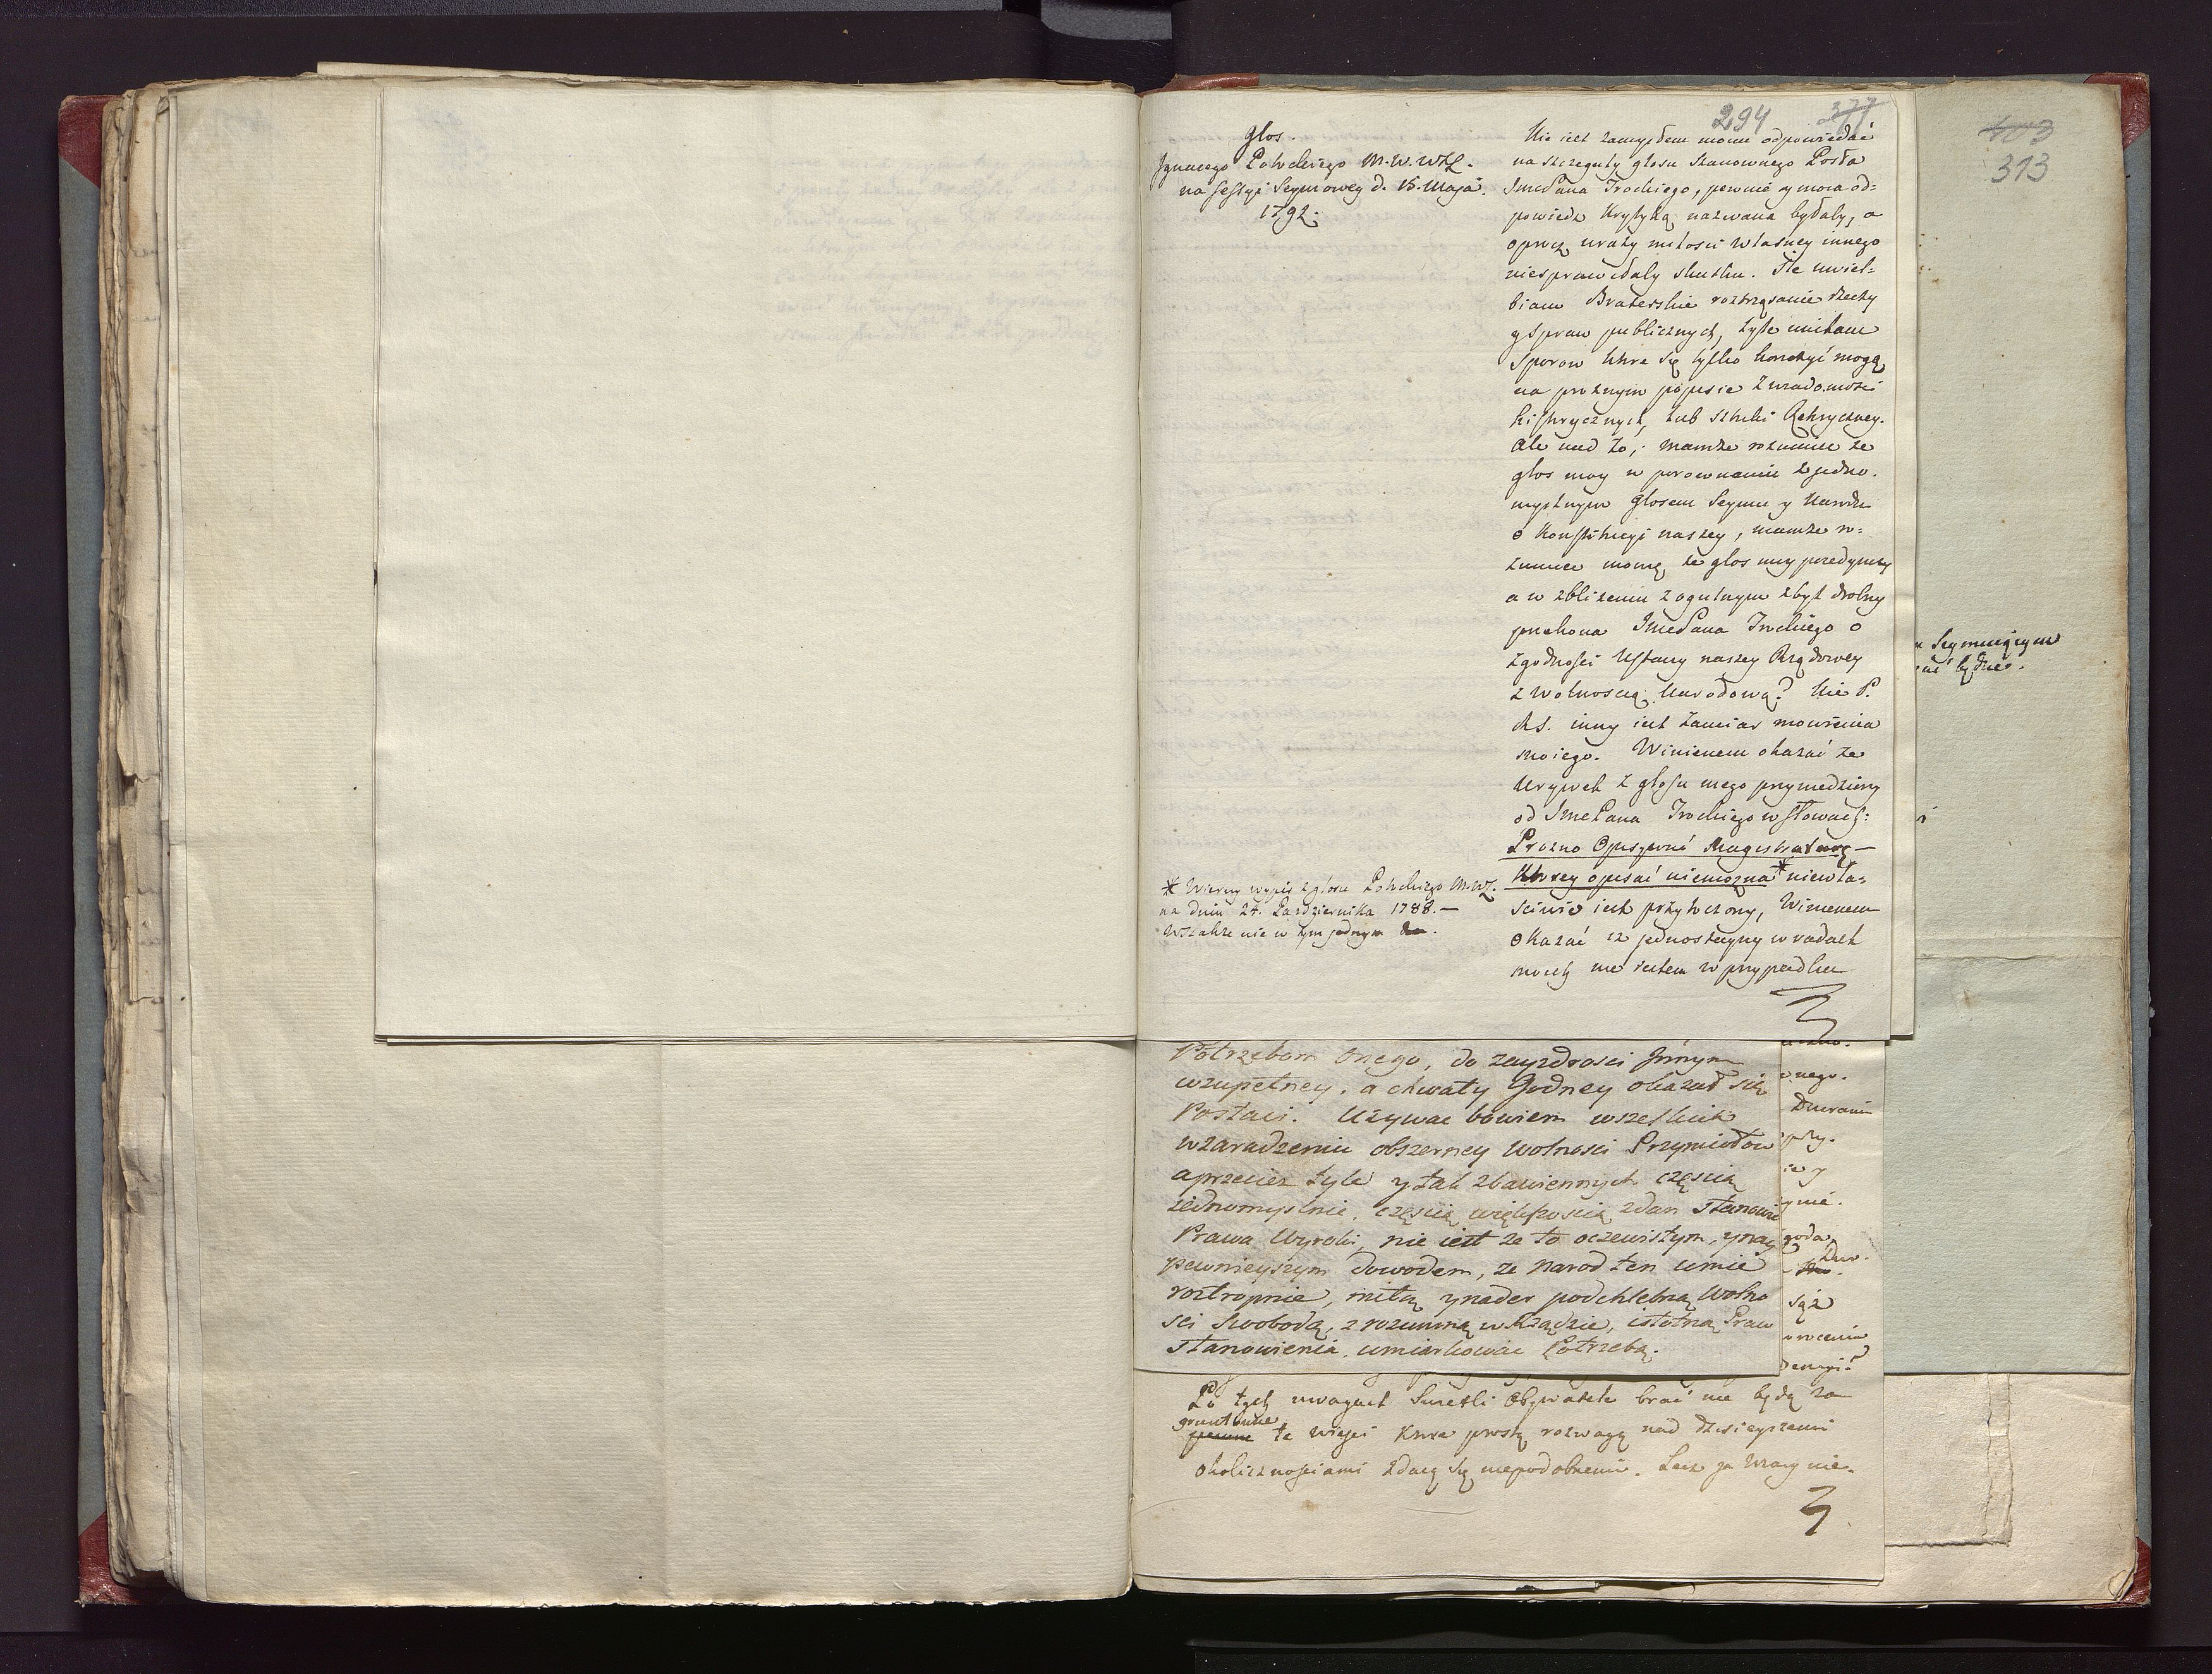 294 377
Głos.
Ignacego Potockiego M. W. WXL.
na sessyi Seymowey d. 15. Maja.
1792.
Nie iest zamysłem moim odpowiedać
na szczeguły głosu Szanownego Posła
JmcPana Trockiego, pewnie y moia od=
powiedz Krytyką nazwana byłaby, a
oprocz urazy miłosci własney innego
niesprawiłaby skutku. Ile uwiel=
biam Braterskie roztrząsanie rzeczy
y spraw publicznych, tyle unikam
sporow ktore się tylko konczyć mogą
na proznym popisie z wiadomosci
historycznych, lub sztuki Retoryczney.
Ale nad to, mamże rozumiec ze
głos moy w porownaniu z jedno.
myslnym głosem Seymu y Narodu
o Konstitucyi naszey, mamże ro=
zumiec mowię, ze głos moy poiedynczy
a w zblizeniu z ogulnym zbyt drobny
przekona JmcPana Trockiego o
zgodnosci Ustawy naszey Rządowey
z wolnoscią Narodową? Nie P.
Ks. inny iest zamiar mowienia
moiego. Winienem okazać ze
urywek z głosu mego przywiedziony
od JmcPana Trockiego w słowach:
Prozno Opisywać Magistraturę —
Ktorey opisać niemozna * niewła=
sciwie iest przytoczony, Winienem
okazać iz jednostayny w radach
moich nie iestem w przypadku
* Wierny wypis z głosu Potockiego M.WL.
na dniu 24. Pazdziernika 1788. —
Wszakze nie w tym jednym
Potrzebom onego, do zazdrosci Jnnym
wzupełney, a chwały Godney okazał się
Postaci. Używac bowiem wszelkich
wzaradzeniu obszerney wolnosci Przymiotow
aprzeciez tyle y tak zbawiennych częscią
jednomyslnie, częscią większoscią zdan Stanowic
Prawa Wyroki, nie iest ze to oczewistym, y nay
pewnieyszym dowodem, ze narod ten umie
roztropnie, miłą y nader podchlebną Wolno
sci swobodą, z rozumną w Rządzie, istotną Praw
Stanowienia, umiarkowac Potrzebą.
Po tych uwagach Swiatli Obywatele brać nie będą za
gruntowne
pewne te wiesci Ktore prostą rozwagą nad dzisieyszemi
okolicznosciami zdaią się niepodobnemi. Lecz ja wracy nie.
403
313
Seymuiącym
ać będzie.
onego.
przy.
goda
sąż